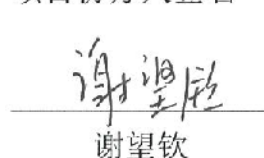 谢望钦
谢望钦